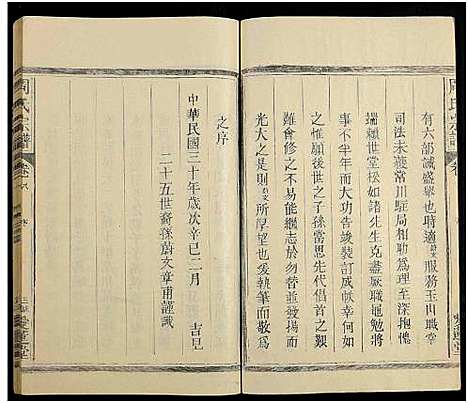 周氏宗譜
卷
有六部誠盛舉也時適蔚文服務玉山職掌
司法未獲常川駐局相助為理至深抱愧
瑞賴世堂松如諸先生克盡厥職黽勉將
事不半年而大功告竣裝訂成帙幸何如
之惟願後世之子孫當思先代倡首之艱
難會修之不易能繼志於勿替發揚而
光大之是則蔚文所厚望也爰執筆而敬為
之序
中華民國三十年歲次辛巳二月 吉旦
二十五世裔孫蔚文章甫謹識
周氏宗譜
卷